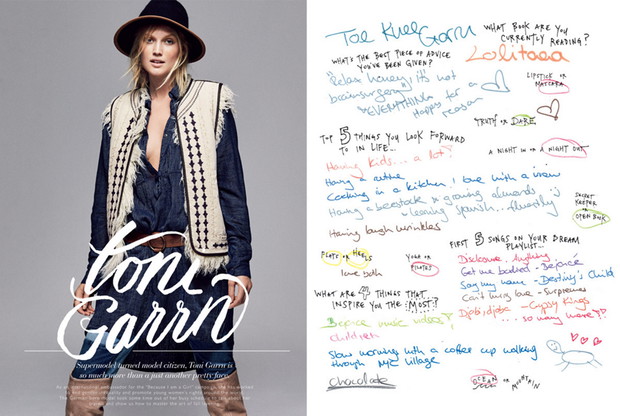 toni
Garrn
Supermodel turned model citizen, Toni Garrn is
so much more than a just another pretty face.
Garrn
WHAT BOOK ARE YOU
CURRENTLY READING?
WHAT'S THE BEST PIECE OF ADVICE
YOU'VE BEEN GIVEN?
"Relax honey, it's not
brainsurgery"
"EVERYTHING
Happens for a
reason
LIPSTICK OR
MASCARA
TRUTH OR DARE
TOP 5 THINGS YOU LOOK FORWARD
TO IN LIFE...
A NIGHT IN OR A NIGHT OUT
Having kids... a lot!
Having a
Cooking in a kitchen! one with a view
Having a & growing almonds :)
learning spanish.. fluently
Having laugh wrinkles
SECRET
KEEPER
OR
OPEN BOOK
FLATS OR HEELS
love both
YOGA OR
PILATES
FIRST 5 SONGS ON YOUR DREAM
PLAYLIST...
Disclosure -
Get me bodied - Beyoncé
Say my name - Destiny's Child
Can't hurry love - Supremes
Djobi, djoba - Gypsy Kings
.... so many more!?
WHAT ARE 4 THINGS THAT
INSPIRE YOU THE MOST!?
Beyonce music videos!
children
Slow morning with a coffee cup walking
through NYC village
chocolate
OCEAN OR MOUNTAIN